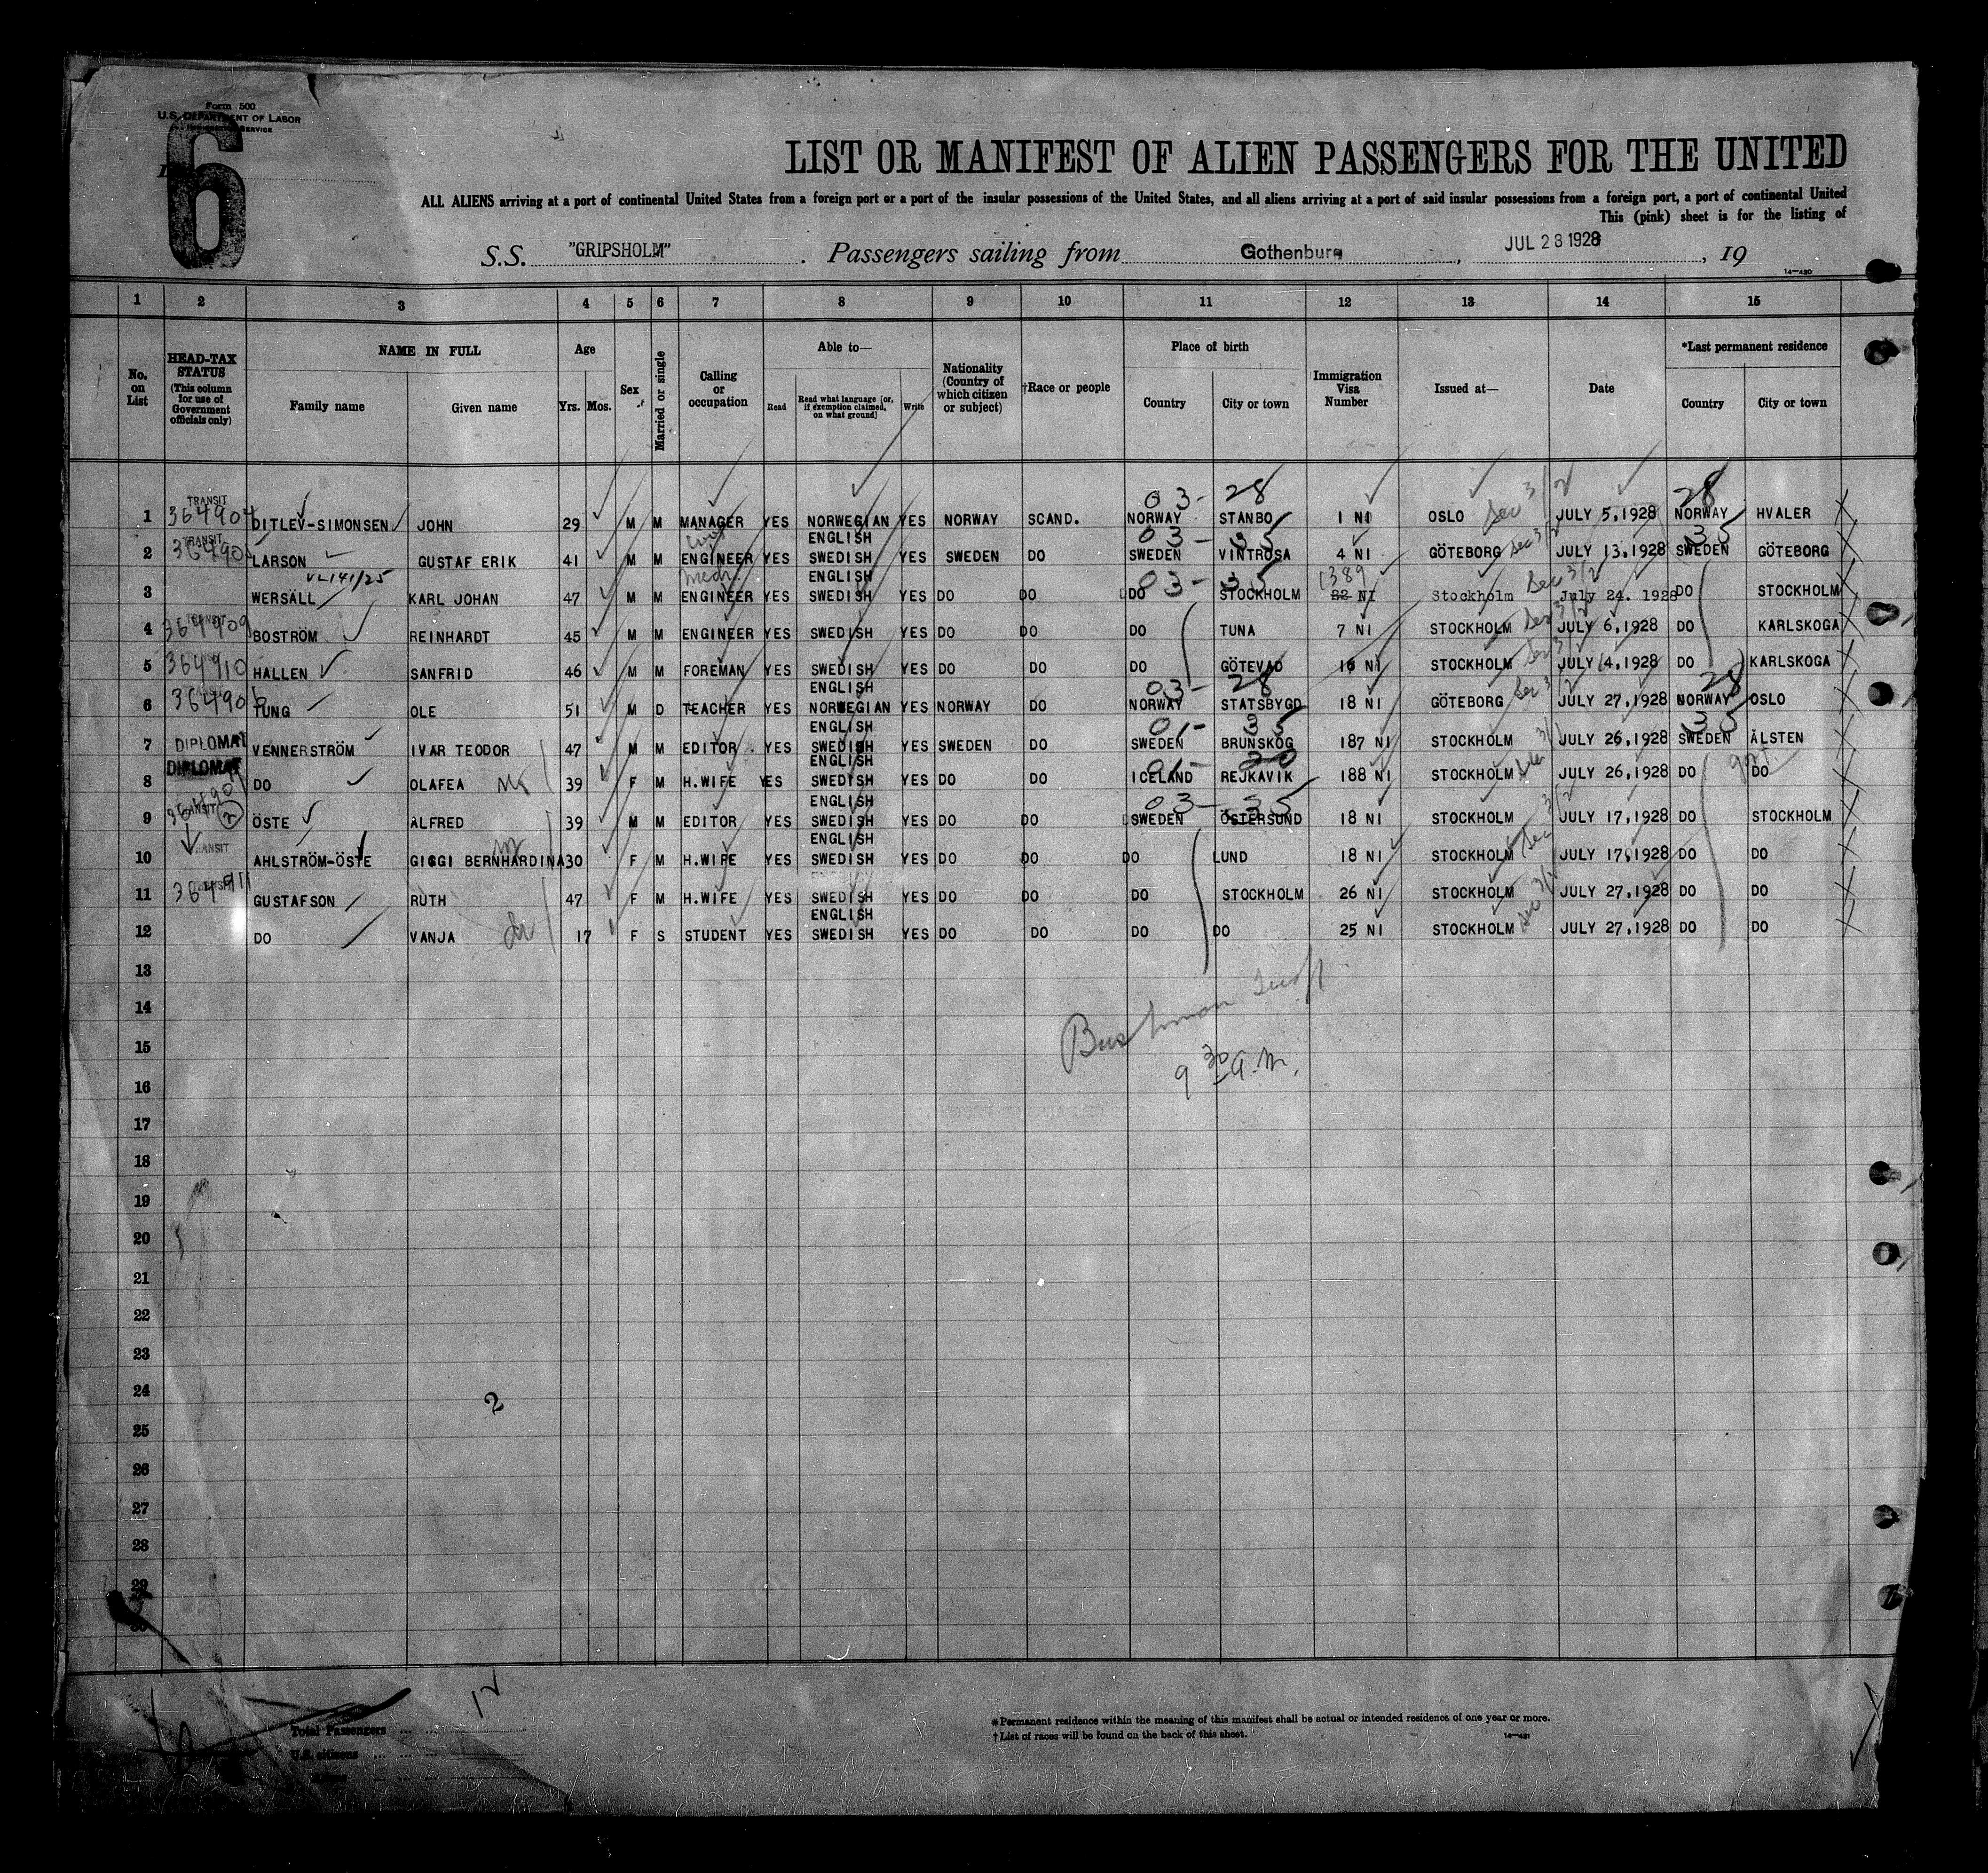 Form 500
U.S. DEPARTMENT OF LABOR
IMMIGRATION SERVICE
6
LIST OR MANIFEST OF ALIEN PASSENGERS FOR THE UNITED
ALL ALIENS arriving at a port of continental United States from a foreign port or a port of the insular possessions of the United States, and all aliens arriving at a port of said insular possessions from a foreign port, a port of continental United
This (pink) sheet is for the listing of
S.S. "GRIPSHOLM". Passengers sailing from Gothenburg, JUL 28 1928, 19
14—480
1 2 3 4 5 6 7 8 9 10 11 12 13 14 15
No. on List
HEAD-TAX STATUS (This column for use of Government officials only)
NAME IN FULL
Family name Given name
Age
Yrs. Mos.
Sex
Married or single
Calling or occupation
Able to—
Read Read what language [or, if exemption claimed, on what ground] Write
Nationality (Country of which citizen or subject)
†Race or people
Place of birth
Country City or town
Immigration Visa Number
Issued at—
Date
*Last permanent residence
Country City or town
TRANSIT 03- 28 28
1 364904 DITLEV-SIMONSEN JOHN 29 M M MANAGER YES NORWEGIAN YES NORWAY SCAND. NORWAY STANBO 1 NI OSLO Sec 3/2 JULY 5,1928 NORWAY HVALER
TRANSIT ENGLISH 03- 35 35
2 364905 LARSON GUSTAF ERIK 41 M M ENGINEER YES SWEDISH YES SWEDEN DO SWEDEN VINTROSA 4 NI GÖTEBORG Sec 3/2 JULY 13,1928 SWEDEN GÖTEBORG
VL141/25 Mech. ENGLISH 03- 35 1389
3 WERSÄLL KARL JOHAN 47 M M ENGINEER YES SWEDISH YES DO DO DO STOCKHOLM 32 NI Stockholm Sec 3/2 July 24. 1928 DO STOCKHOLM
4 364909 BOSTRÖM REINHARDT 45 M M ENGINEER YES SWEDISH YES DO DO DO TUNA 7 NI STOCKHOLM Sec 3/2 JULY 6,1928 DO KARLSKOGA
5 364910 HALLEN SANFRID 46 M M FOREMAN YES SWEDISH YES DO DO DO GÖTEVAD NI STOCKHOLM Sec 3/2 JULY 14,1928 DO KARLSKOGA
ENGLISH 03- 28 28
6 364906 TUNG OLE 51 M D TEACHER YES NORWEGIAN YES NORWAY DO NORWAY STATSBYGD 18 NI GÖTEBORG Sec 3/2 JULY 27,1928 NORWAY OSLO
ENGLISH 01- 35 35
7 DIPLOMAT VENNERSTRÖM IVAR TEODOR 47 M M EDITOR. YES SWEDISH YES SWEDEN DO SWEDEN BRUNSKOG 187 NI STOCKHOLM JULY 26,1928 SWEDEN ÄLSTEN
DIPLOMAT ENGLISH 01- 20
8 DO OLAFEA 39 F M H.WIFE YES SWEDISH YES DO DO ICELAND REJKAVIK 188 NI STOCKHOLM JULY 26,1928 DO DO
TRANSIT ENGLISH 03- 35
9 ÖSTE ALFRED 39 M M EDITOR YES SWEDISH YES DO DO SWEDEN ÖSTERSUND 18 NI STOCKHOLM JULY 17,1928 DO STOCKHOLM
TRANSIT ENGLISH
10 AHLSTRÖM-ÖSTE GIGGI BERNHARDINA 30 F M H.WIFE YES SWEDISH YES DO DO DO LUND 18 NI STOCKHOLM JULY 17,1928 DO DO
11 364911 GUSTAFSON RUTH 47 F M H.WIFE YES SWEDISH YES DO DO DO STOCKHOLM 26 NI STOCKHOLM JULY 27,1928 DO DO
ENGLISH
12 DO VANJA 17 F S STUDENT YES SWEDISH YES DO DO DO DO 25 NI STOCKHOLM JULY 27,1928 DO DO
13
14
15
9 30 a.m.
16
17
18
19
20
21
22
23
24
2
25
26
27
28
29
30
12
Total Passengers
U.S. citizens
*Permanent residence within the meaning of this manifest shall be actual or intended residence of one year or more.
†List of races will be found on the back of this sheet.
14—481